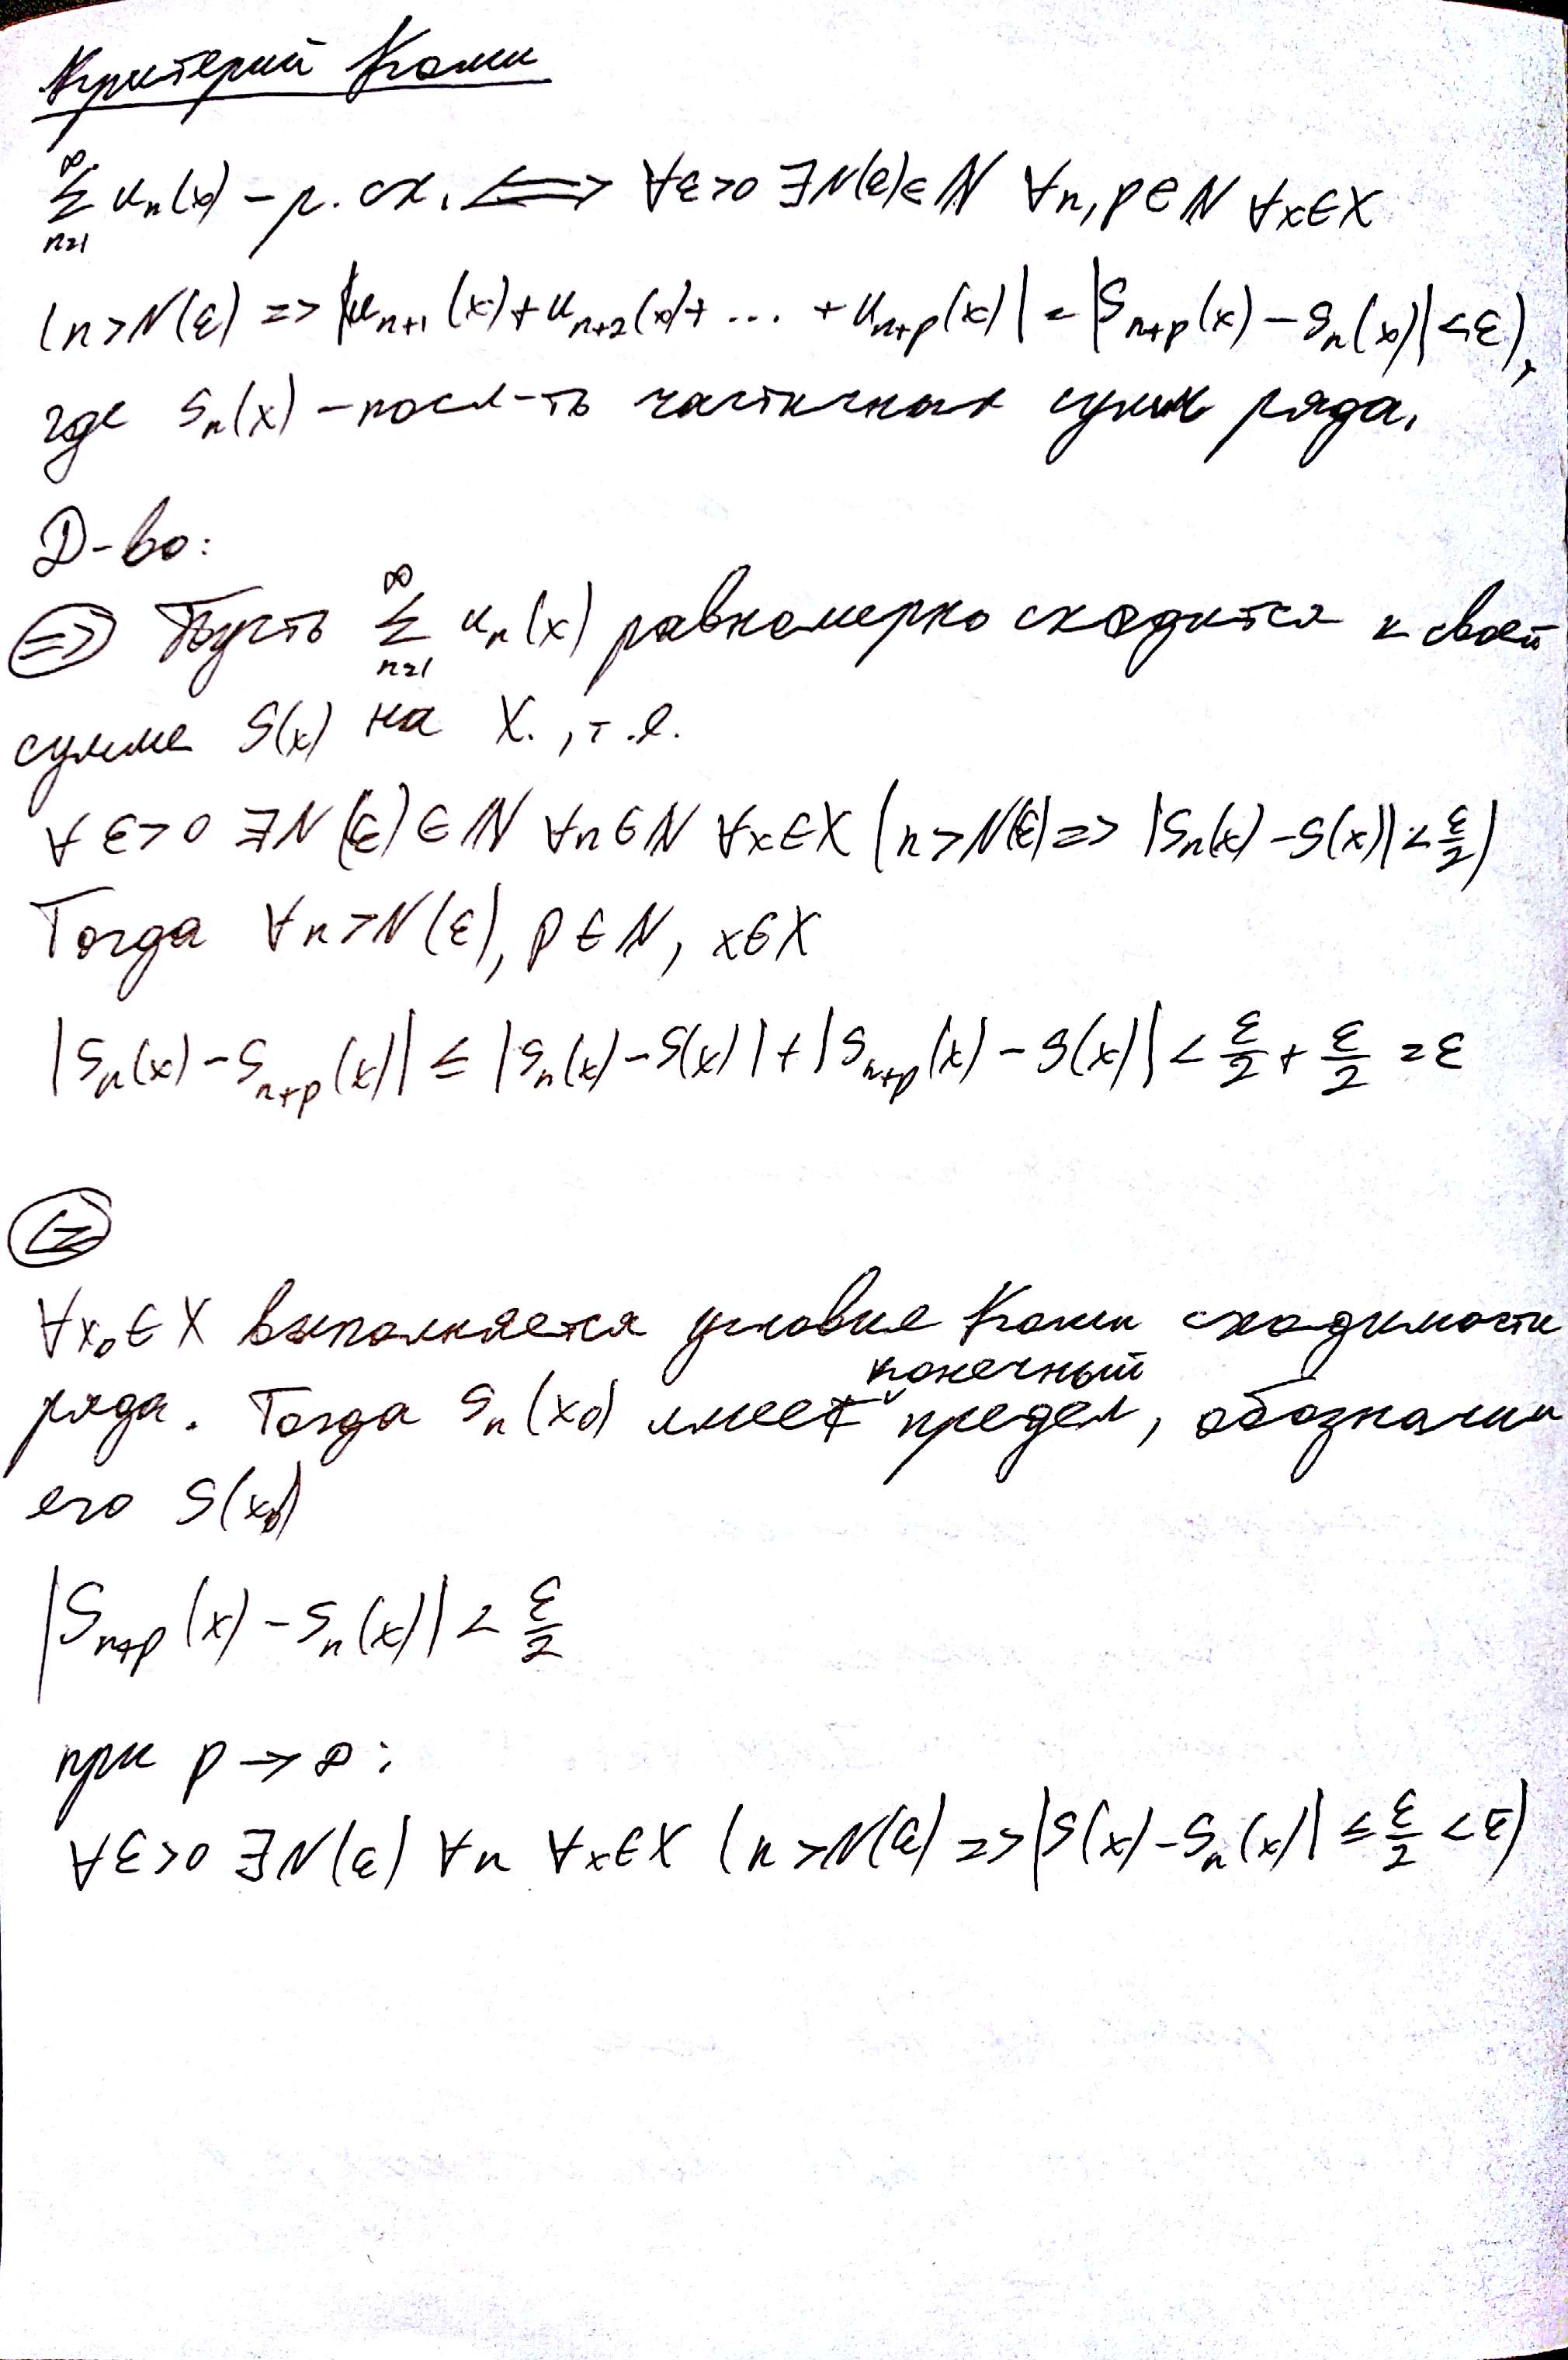 Критерий Коши
∞ Σ n=1 uₙ(x) – р. сх. <=> ∀ε>0 ∃N(ε)∈ℕ ∀n,p∈ℕ ∀x∈X
(n>N(ε) => |uₙ₊₁(x)+uₙ₊₂(x)+ ... +uₙ₊ₚ(x)| = |Sₙ₊ₚ(x) – Sₙ(x)|<ε),
где Sₙ(x) – посл-ть частичных сумм ряда.
Д-во:
=> Пусть ∞ Σ n=1 uₙ(x) равномерно сходится к своей
сумме S(x) на X., т.е.
∀ε>0 ∃N(ε)∈ℕ ∀n∈ℕ ∀x∈X (n>N(ε) => |Sₙ(x) – S(x)|<ε/2)
Тогда ∀n>N(ε), p∈ℕ, x∈X
|Sₙ(x) – Sₙ₊ₚ(x)| ≤ |Sₙ(x) – S(x)| + |Sₙ₊ₚ(x) – S(x)| < ε/2 + ε/2 = ε
<=
∀x₀∈X выполняется условие Коши сходимости
ряда. Тогда Sₙ(x₀) имеет конечный предел, обозначим
его S(x₀)
|Sₙ₊ₚ(x) – Sₙ(x)| < ε/2
при p → ∞:
∀ε>0 ∃N(ε) ∀n ∀x∈X (n>N(ε) => |S(x) – Sₙ(x)| ≤ ε/2 < ε)